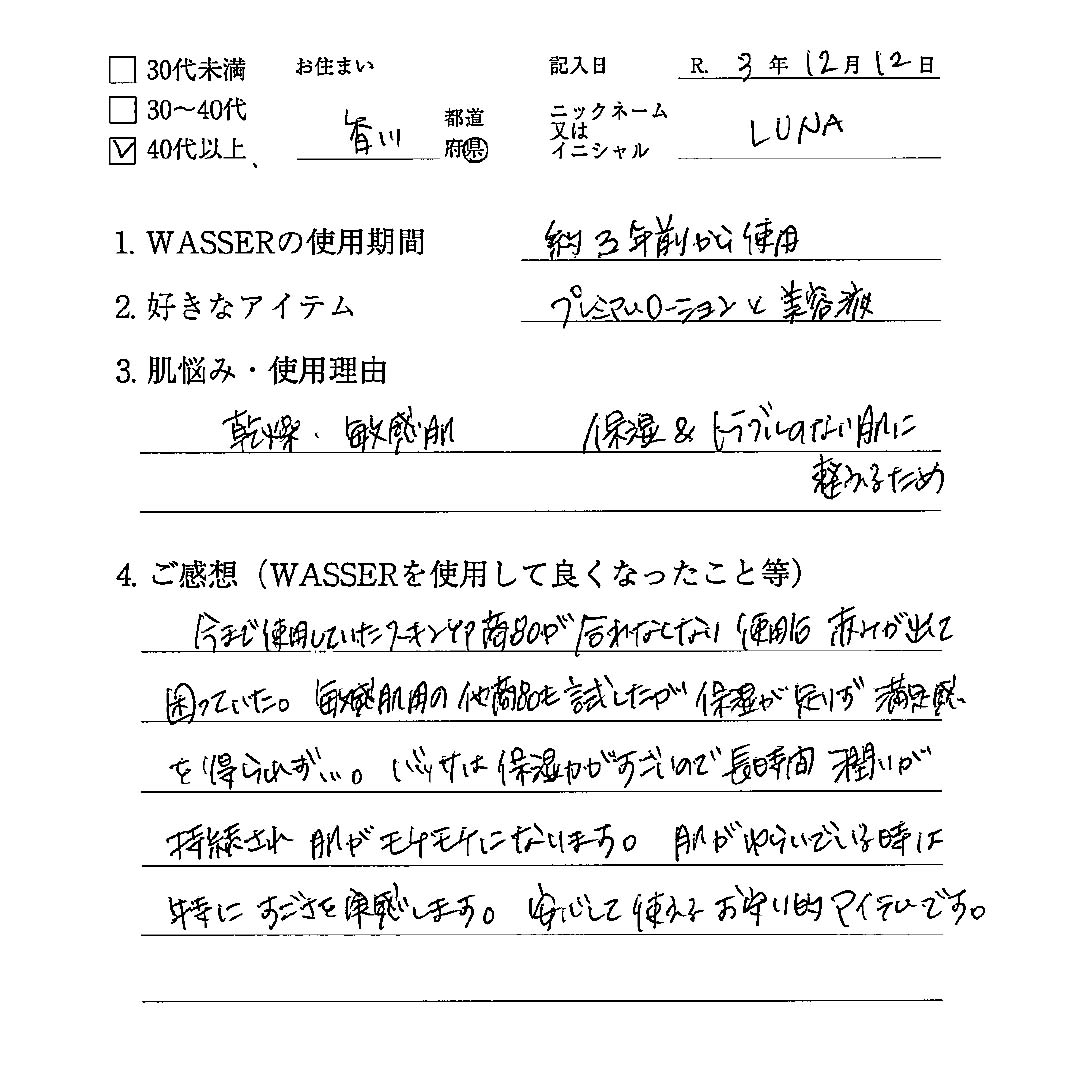 30代未満 お住まい 記入日 R. 3年12月12日
30〜40代 香川 都道 ニックネーム
又は LUNA
40代以上 府県 イニシャル
1. WASSERの使用期間 約3年前から使用
2. 好きなアイテム プレミアムローションと美容液
3. 肌悩み・使用理由
乾燥・敏感肌 保湿&トラブルのない肌に
整えるため
4. ご感想（WASSERを使用して良くなったこと等）
今まで使用していたスキンケア商品が合わなくなり 使用後 赤みが出て
困っていた。敏感肌用の他商品も試したが 保湿が足りず 満足感
を得られず…。バッサは保湿力がすごいので長時間 潤いが
持続され 肌がモチモチになります。肌がゆらいでいる時は
特に すごさを実感します。安心して使える お守り的アイテムです。